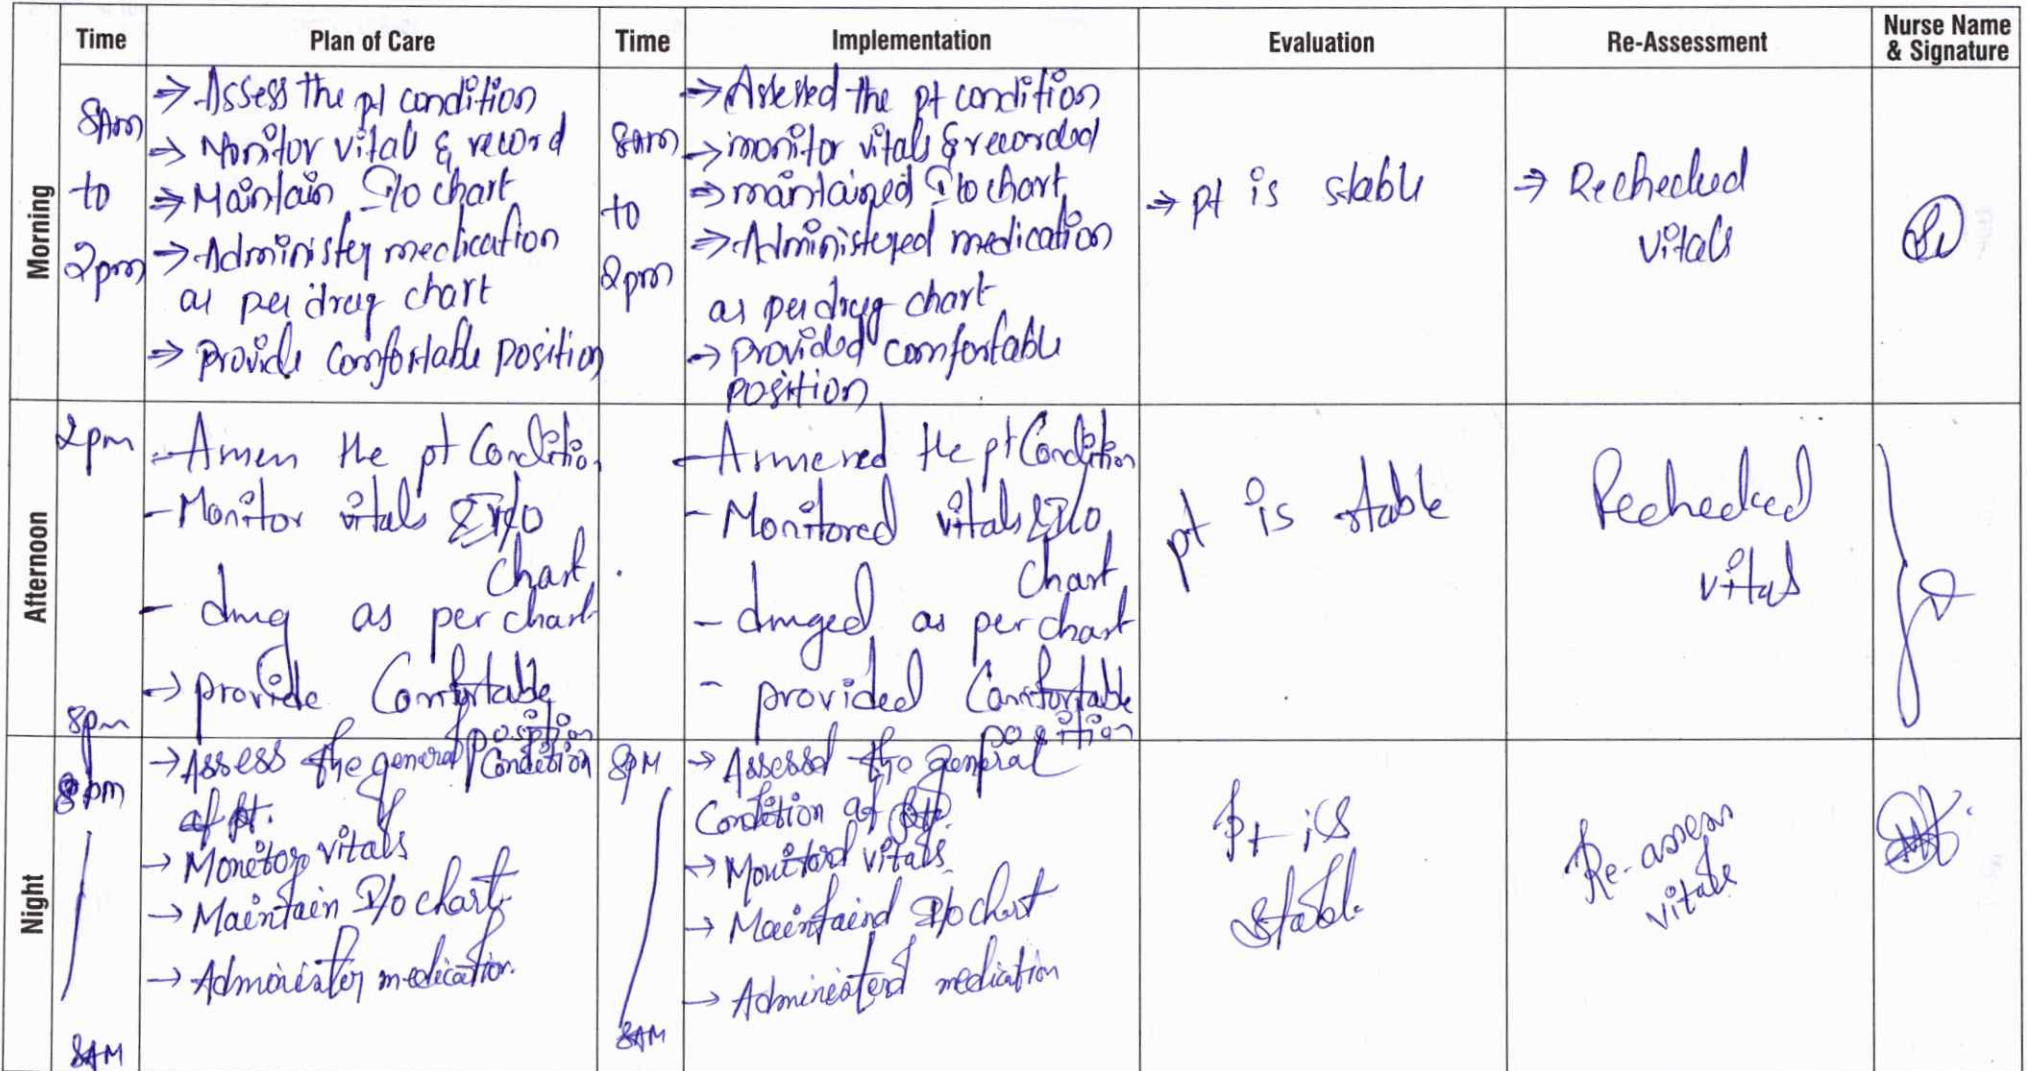 Time Plan of Care Time Implementation Evaluation Re-Assessment Nurse Name & Signature
Morning
8Am to 2pm
→ Assess the pt condition
→ Monitor vital & record
→ Maintain I/o chart
→ Administer medication
as per drug chart
→ provide comfortable position
8am to 2pm
→ Assessed the pt condition
→ monitor vitals & recorded
→ maintained I/o chart
→ Administered medication
as per drug chart
→ provided comfortable
position
→ pt is stable
→ Rechecked
vitals
Afternoon
2pm
8pm
- Assess the pt Condition
- Monitor vitals & I/o
chart
- drug as per chart
→ provide Comfortable
position
- Assessed the pt Condition
- Monitored vitals & I/o
chart
- druged as per chart
- provided Comfortable
position
pt is stable
Rechecked
vitals
Night
8pm
8AM
→ Assess the general Condition
of pt.
→ Monitor vitals
→ Maintain I/o chart
→ Administer medication.
8PM
8AM
→ Assessd the general
Condition of pt.
→ Monitord vitals.
→ Maintaind I/o chart
→ Administerd medication
Pt is
stable
Re-assess
vitals